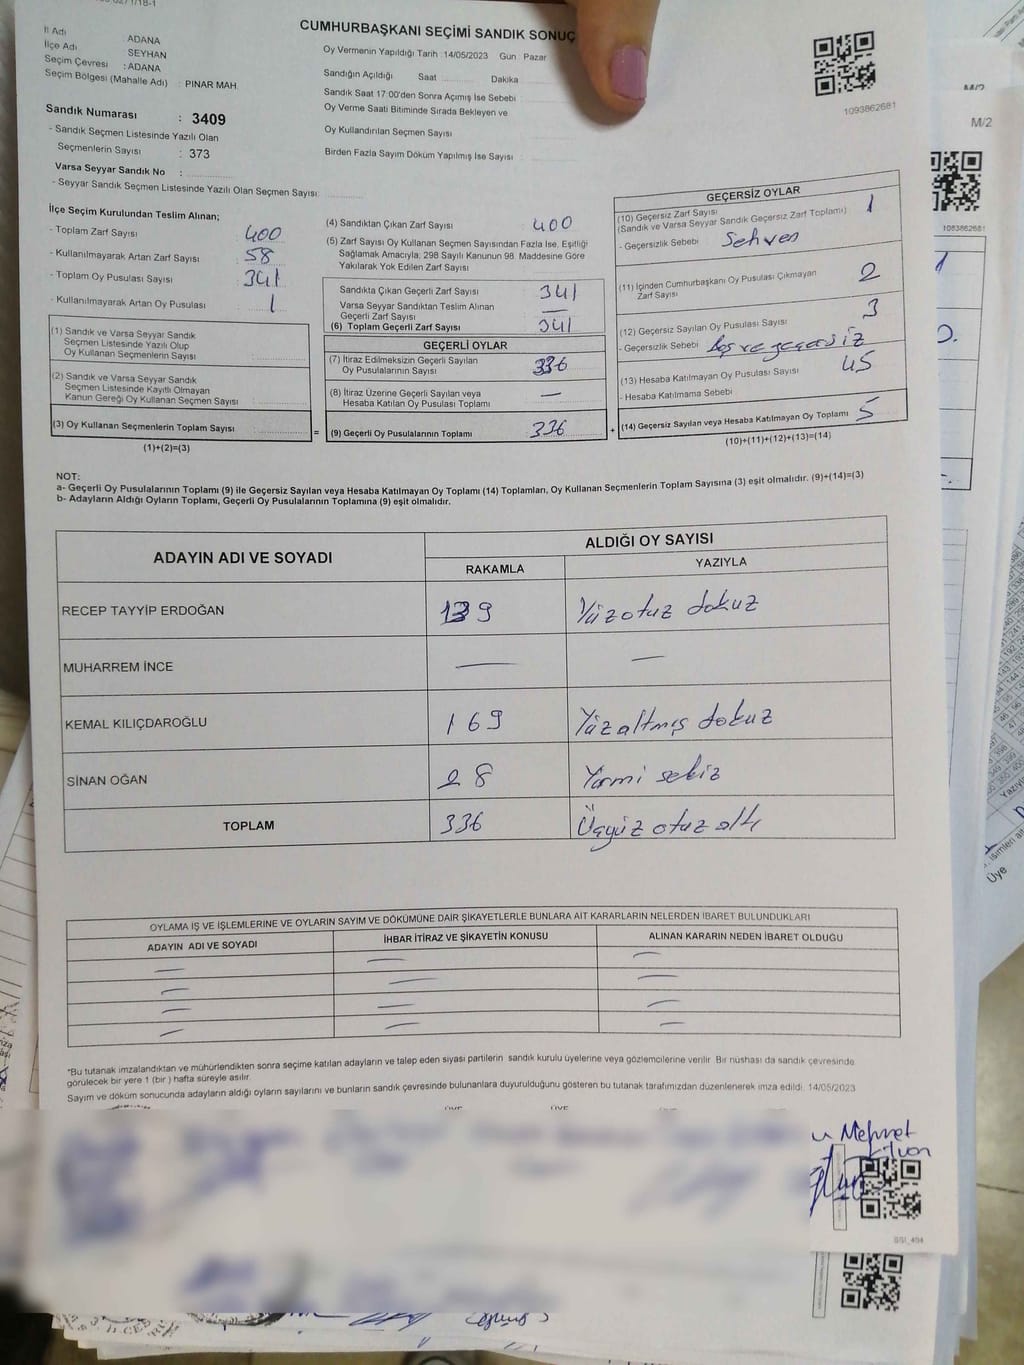 CUMHURBAŞKANI SEÇİMİ SANDIK SONUÇ
İl Adı : ADANA
İlçe Adı : SEYHAN
Seçim Çevresi : ADANA
Seçim Bölgesi (Mahalle Adı) : PINAR MAH.
Oy Vermenin Yapıldığı Tarih : 14/05/2023 Gün Pazar
Sandığın Açıldığı Saat Dakika
Sandık Saat 17:00'den Sonra Açılmış İse Sebebi
Oy Verme Saati Bitiminde Sırada Bekleyen ve
Oy Kullandırılan Seçmen Sayısı
Birden Fazla Sayım Döküm Yapılmış İse Sayısı
1093862681
M/2
M/2
1093862681
Sandık Numarası : 3409
- Sandık Seçmen Listesinde Yazılı Olan
Seçmenlerin Sayısı : 373
Varsa Seyyar Sandık No :
- Seyyar Sandık Seçmen Listesinde Yazılı Olan Seçmen Sayısı:
İlçe Seçim Kurulundan Teslim Alınan;
- Toplam Zarf Sayısı 400
- Kullanılmayarak Artan Zarf Sayısı 58
- Toplam Oy Pusulası Sayısı 341
- Kullanılmayarak Artan Oy Pusulası 1
(1) Sandık ve Varsa Seyyar Sandık
Seçmen Listesinde Yazılı Olup
Oy Kullanan Seçmenlerin Sayısı
(2) Sandık ve Varsa Seyyar Sandık
Seçmen Listesinde Kayıtlı Olmayan
Kanun Gereği Oy Kullanan Seçmen Sayısı
(3) Oy Kullanan Seçmenlerin Toplam Sayısı
(1)+(2)=(3)
(4) Sandıktan Çıkan Zarf Sayısı 400
(5) Zarf Sayısı Oy Kullanan Seçmen Sayısından Fazla İse, Eşitliği
Sağlamak Amacıyla; 298 Sayılı Kanunun 98. Maddesine Göre
Yakılarak Yok Edilen Zarf Sayısı
Sandıkta Çıkan Geçerli Zarf Sayısı 341
Varsa Seyyar Sandıktan Teslim Alınan
Geçerli Zarf Sayısı —
(6) Toplam Geçerli Zarf Sayısı 341
GEÇERLİ OYLAR
(7) İtiraz Edilmeksizin Geçerli Sayılan
Oy Pusulalarının Sayısı 336
(8) İtiraz Üzerine Geçerli Sayılan veya
Hesaba Katılan Oy Pusulası Toplamı —
= (9) Geçerli Oy Pusulalarının Toplamı 336 +
GEÇERSİZ OYLAR
(10) Geçersiz Zarf Sayısı 1
(Sandık ve Varsa Seyyar Sandık Geçersiz Zarf Toplamı)
- Geçersizlik Sebebi Sehven
(11) İçinden Cumhurbaşkanı Oy Pusulası Çıkmayan
Zarf Sayısı 2
(12) Geçersiz Sayılan Oy Pusulası Sayısı 3
- Geçersizlik Sebebi Boş ve geçersiz
(13) Hesaba Katılmayan Oy Pusulası Sayısı
- Hesaba Katılmama Sebebi
(14) Geçersiz Sayılan veya Hesaba Katılmayan Oy Toplamı 5
(10)+(11)+(12)+(13)=(14)
NOT:
a- Geçerli Oy Pusulalarının Toplamı (9) ile Geçersiz Sayılan veya Hesaba Katılmayan Oy Toplamı (14) Toplamları, Oy Kullanan Seçmenlerin Toplam Sayısına (3) eşit olmalıdır. (9)+(14)=(3)
b- Adayların Aldığı Oyların Toplamı, Geçerli Oy Pusulalarının Toplamına (9) eşit olmalıdır.
ADAYIN ADI VE SOYADI ALDIĞI OY SAYISI
RAKAMLA YAZIYLA
RECEP TAYYİP ERDOĞAN 139 Yüzotuz dokuz
MUHARREM İNCE — —
KEMAL KILIÇDAROĞLU 169 Yüzaltmış dokuz
SİNAN OĞAN 28 Yirmi sekiz
TOPLAM 336 Üçyüz otuz altı
OYLAMA İŞ VE İŞLEMLERİNE VE OYLARIN SAYIM VE DÖKÜMÜNE DAİR ŞİKAYETLERLE BUNLARA AİT KARARLARIN NELERDEN İBARET BULUNDUKLARI
ADAYIN ADI VE SOYADI İHBAR İTİRAZ VE ŞİKAYETİN KONUSU ALINAN KARARIN NEDEN İBARET OLDUĞU
— — —
— — —
— — —
— — —
*Bu tutanak imzalandıktan ve mühürlendikten sonra seçime katılan adayların ve talep eden siyasi partilerin sandık kurulu üyelerine veya gözlemcilerine verilir. Bir nüshası da sandık çevresinde
görülecek bir yere 1 (bir) hafta süreyle asılır.
Sayım ve döküm sonucunda adayların aldığı oyların sayılarını ve bunların sandık çevresinde bulunanlara duyurulduğunu gösteren bu tutanak tarafımızdan düzenlenerek imza edildi. 14/05/2023
Mehmet
Üye